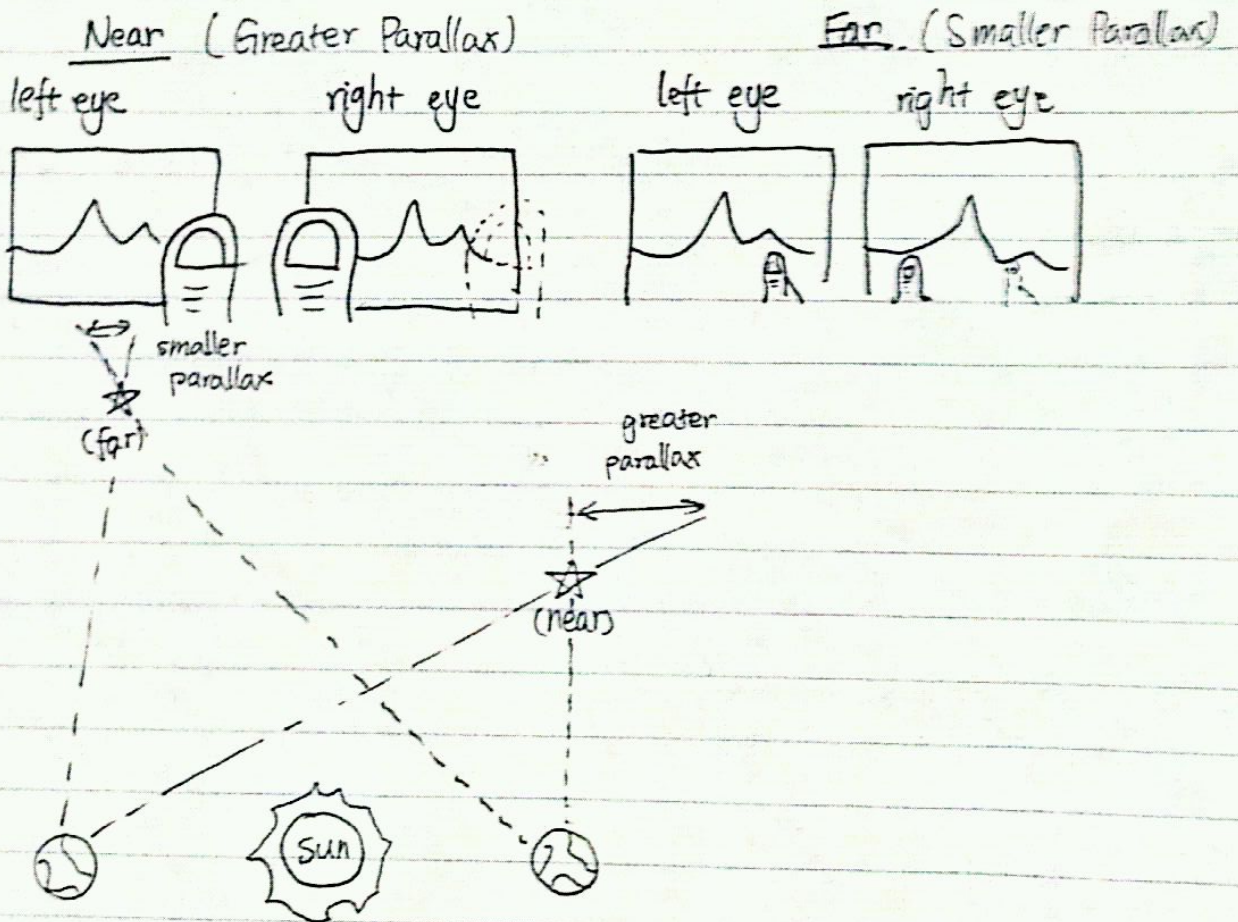 Near (Greater Parallax)
Far. (Smaller Parallax)
left eye
right eye
left eye
right eye
smaller
parallax
(far)
greater
parallax
(near)
Sun